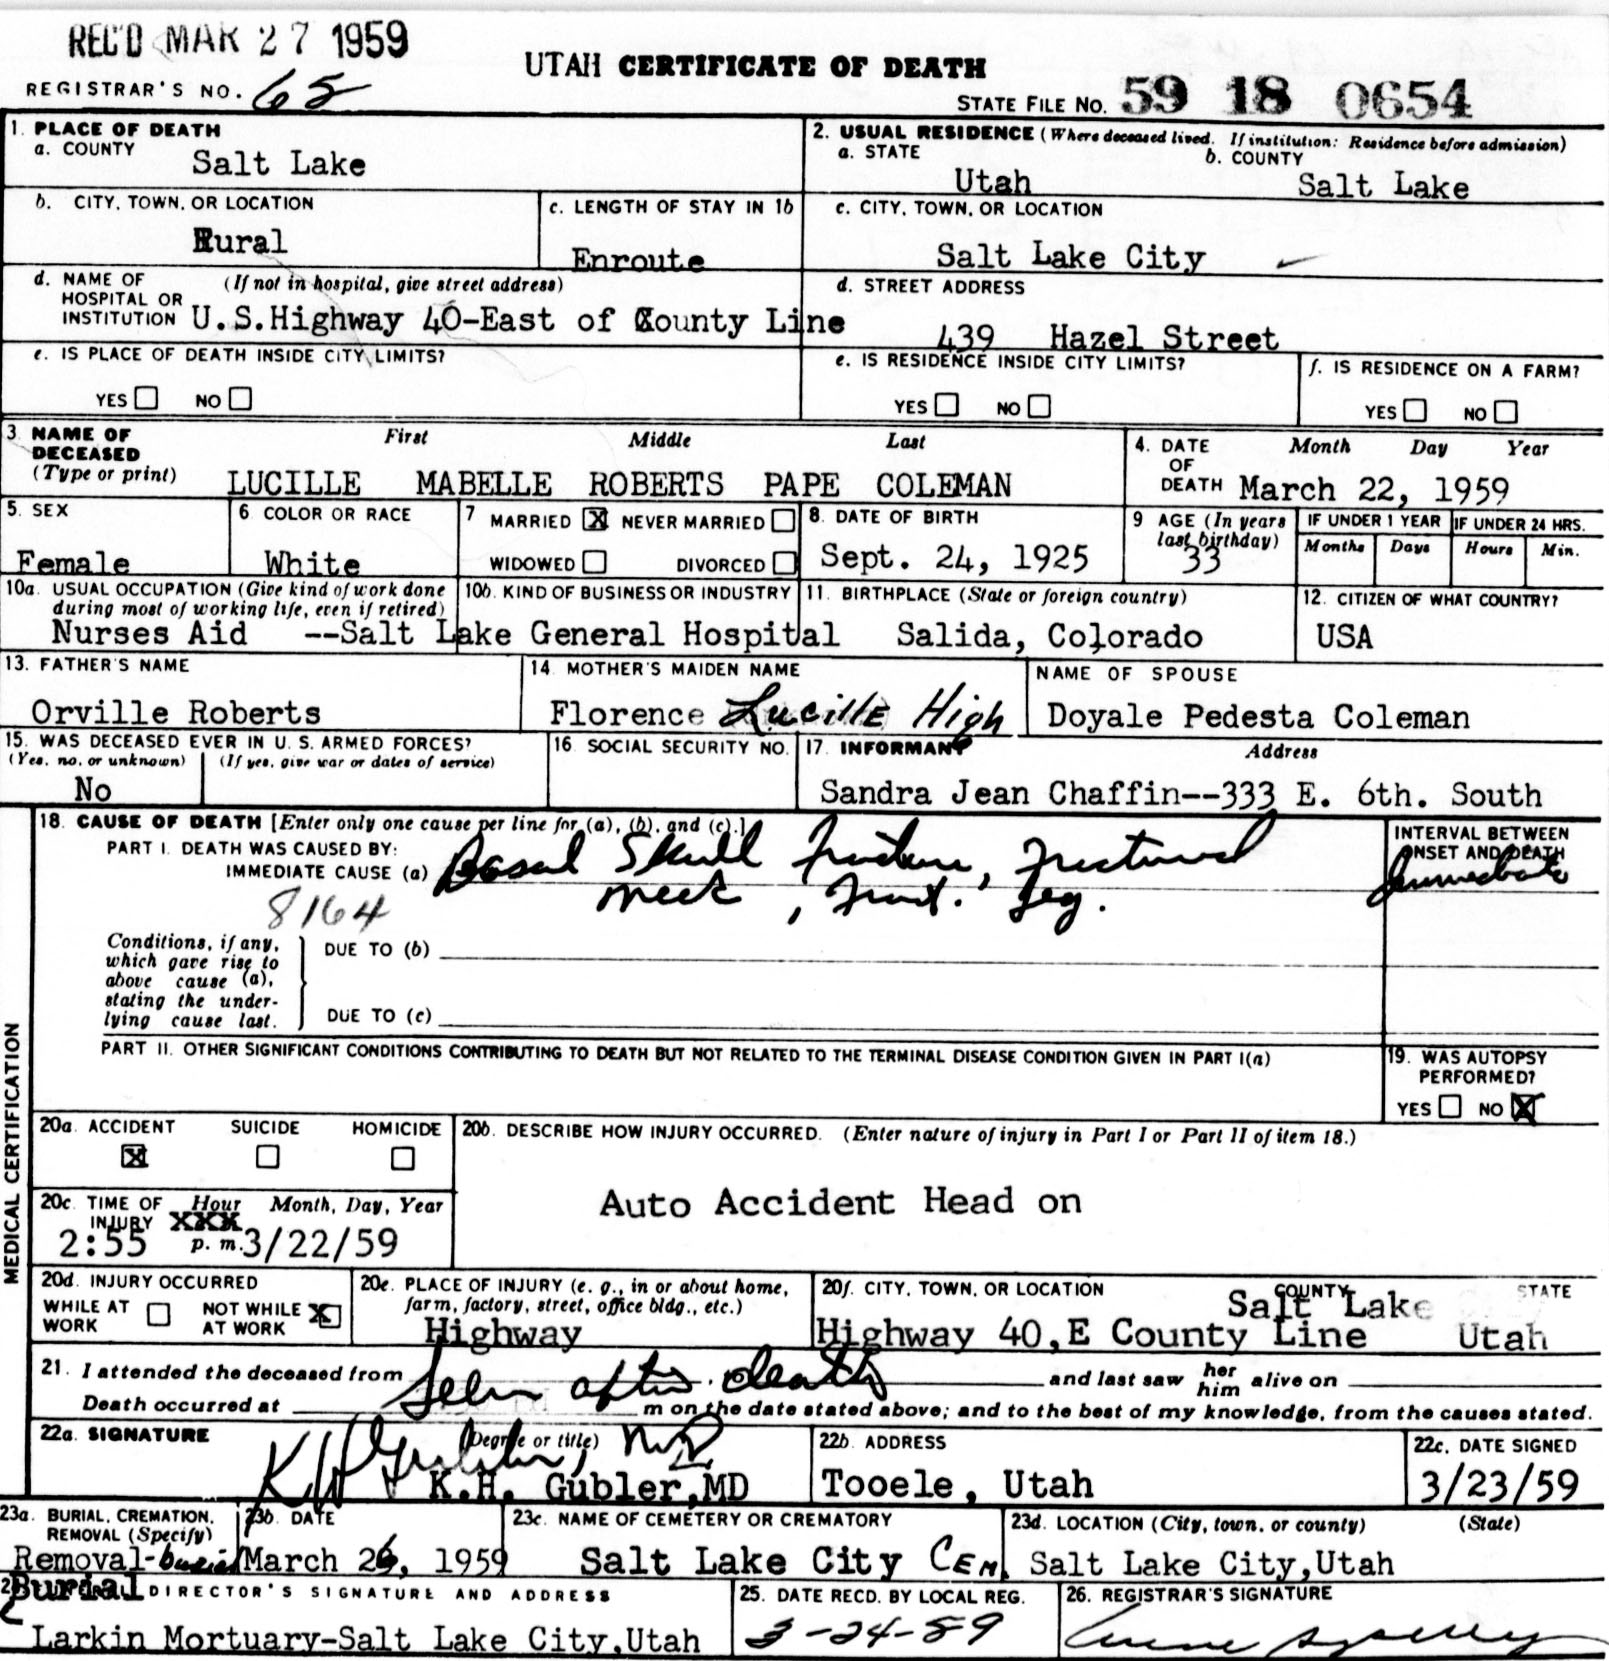 REC'D MAR 27 1959
UTAH CERTIFICATE OF DEATH
REGISTRAR'S NO. 65
STATE FILE NO. 59 18 0654
1. PLACE OF DEATH
a. COUNTY
Salt Lake
2. USUAL RESIDENCE (Where deceased lived. If institution: Residence before admission)
a. STATE b. COUNTY
Utah Salt Lake
b. CITY, TOWN, OR LOCATION
Rural
c. LENGTH OF STAY IN 1b
Enroute
c. CITY, TOWN, OR LOCATION
Salt Lake City
d. NAME OF HOSPITAL OR INSTITUTION (If not in hospital, give street address)
U.S.Highway 40-East of County Line
d. STREET ADDRESS
439 Hazel Street
e. IS PLACE OF DEATH INSIDE CITY LIMITS?
YES NO
e. IS RESIDENCE INSIDE CITY LIMITS?
YES NO
f. IS RESIDENCE ON A FARM?
YES NO
3. NAME OF DECEASED (Type or print)
First Middle Last
LUCILLE MABELLE ROBERTS PAPE COLEMAN
4. DATE OF DEATH Month Day Year
March 22, 1959
5. SEX
Female
6 COLOR OR RACE
White
7 MARRIED X NEVER MARRIED
WIDOWED DIVORCED
8. DATE OF BIRTH
Sept. 24, 1925
9 AGE (In years last birthday)
33
IF UNDER 1 YEAR IF UNDER 24 HRS.
Months Days Hours Min.
10a. USUAL OCCUPATION (Give kind of work done during most of working life, even if retired)
10b. KIND OF BUSINESS OR INDUSTRY
Nurses Aid --Salt Lake General Hospital
11. BIRTHPLACE (State or foreign country)
Salida, Colorado
12. CITIZEN OF WHAT COUNTRY?
USA
13. FATHER'S NAME
Orville Roberts
14 MOTHER'S MAIDEN NAME
Florence Lucille High
NAME OF SPOUSE
Doyale Pedesta Coleman
15. WAS DECEASED EVER IN U. S. ARMED FORCES?
(Yes, no, or unknown) (If yes, give war or dates of service)
No
16. SOCIAL SECURITY NO.
17. INFORMANT Address
Sandra Jean Chaffin--333 E. 6th. South
MEDICAL CERTIFICATION
18. CAUSE OF DEATH [Enter only one cause per line for (a), (b), and (c).]
PART I. DEATH WAS CAUSED BY:
IMMEDIATE CAUSE (a) Basal Skull Fracture, Fractured
neck, Fract. Leg.
8164
INTERVAL BETWEEN ONSET AND DEATH
Immediate
Conditions, if any, which gave rise to above cause (a), stating the underlying cause last.
DUE TO (b)
DUE TO (c)
PART II. OTHER SIGNIFICANT CONDITIONS CONTRIBUTING TO DEATH BUT NOT RELATED TO THE TERMINAL DISEASE CONDITION GIVEN IN PART I(a)
19. WAS AUTOPSY PERFORMED?
YES NO X
20a. ACCIDENT SUICIDE HOMICIDE
X
20b. DESCRIBE HOW INJURY OCCURRED. (Enter nature of injury in Part I or Part II of item 18.)
Auto Accident Head on
20c. TIME OF INJURY Hour Month, Day, Year
XXX
2:55 p. m. 3/22/59
20d. INJURY OCCURRED
WHILE AT WORK NOT WHILE AT WORK X
20e. PLACE OF INJURY (e. g., in or about home, farm, factory, street, office bldg., etc.)
Highway
20f. CITY, TOWN, OR LOCATION COUNTY STATE
Salt Lake
Highway 40,E County Line Utah
21. I attended the deceased from Seen after death and last saw her him alive on
Death occurred at m on the date stated above; and to the best of my knowledge, from the causes stated.
22a. SIGNATURE (Degree or title)
KH Gubler, MD
K.H. Gubler,MD
22b. ADDRESS
Tooele, Utah
22c. DATE SIGNED
3/23/59
23a. BURIAL, CREMATION, REMOVAL (Specify)
Removal-burial
Burial
23b. DATE
March 26, 1959
23c. NAME OF CEMETERY OR CREMATORY
Salt Lake City Cem.
23d. LOCATION (City, town, or county) (State)
Salt Lake City,Utah
DIRECTOR'S SIGNATURE AND ADDRESS
Larkin Mortuary-Salt Lake City,Utah
25. DATE RECD. BY LOCAL REG.
3-24-59
26. REGISTRAR'S SIGNATURE